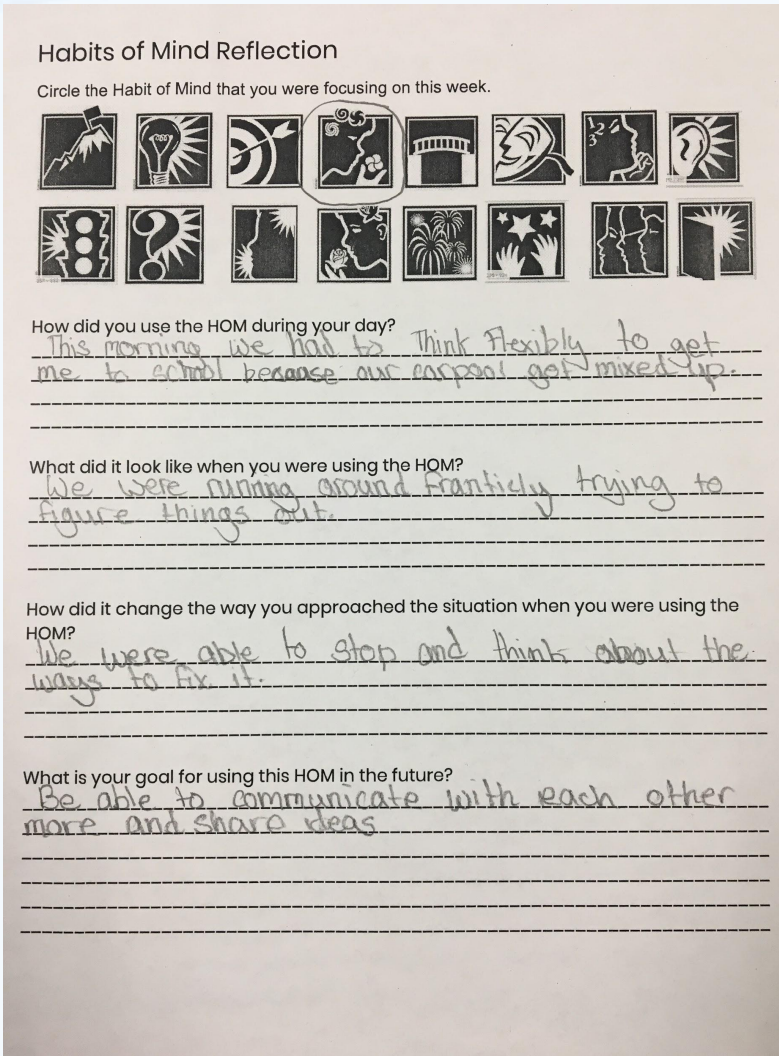 Habits of Mind Reflection
Circle the Habit of Mind that you were focusing on this week.
1 2 3
How did you use the HOM during your day?
This morning we had to Think Flexibly to get
me to school because our carpool got mixed up.
What did it look like when you were using the HOM?
We were running around franticly trying to
figure things out.
How did it change the way you approached the situation when you were using the
HOM?
We were able to stop and think about the
ways to fix it.
What is your goal for using this HOM in the future?
Be able to communicate with each other
more and share ideas